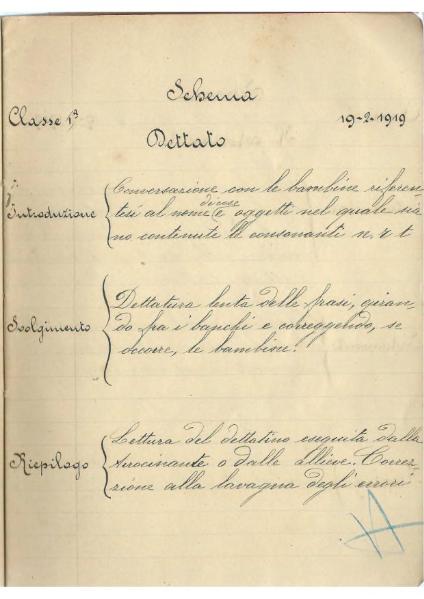 Schema
Classe 1ª
19-2-1919
Dettato
Introduzione
Conversazione con le bambine riferen
tesi al nome di cose e oggetti nel quale sia
no contenute le consonanti n. r t
Svolgimento
Dettatura lenta delle frasi, giran
do fra i banchi e correggendo, se
occorre, le bambine.
Riepilogo
Lettura del dettatino eseguita dalla
tirocinante o dalle allieve. Corre
zione alla lavagna degli errori